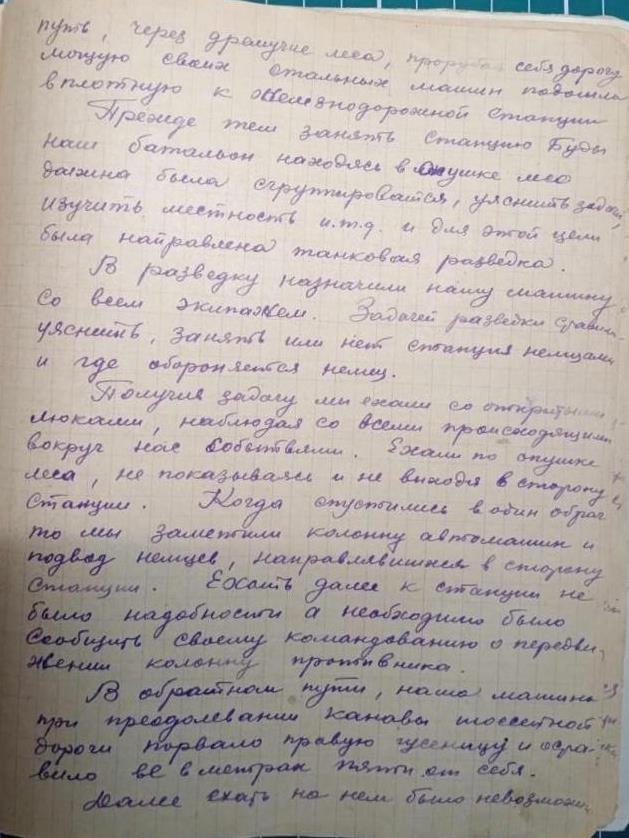 путь, через дремучие леса, прорубая себе дорогу
мощую своих стальных машин подошли
вплотную к железнодорожной станции
Прежде чем занять станцию Буды
наш батальон находясь в опушке леса
должна была сгруппироватся, уяснить задачу,
изучить местность и.т.д. и для этой цели
была направлена танковая разведка.
В разведку назначили нашу машину
со всем экипажем. Задачей разведки
уяснить, занять или нет станция немцами
и где обороняется немец.
Получив задачу мы ехали со открытыми
люками, наблюдая со всеми происходящими
вокруг нас событиями. Ехали по опушке
леса, не показываясь и не выходя в сторону
станции. Когда спустились в один овраг
то мы заметили колонну автомашин и
подвод немцев, направлявшихся в сторону
станции. Ехать далее к станции не
было надобности а необходимо было
сообщить своему командованию о передви-
жении колонну противника.
В обратном пути, наша машина
при преодолевании канавы шоссейной
дороги порвало правую гусеницу и
ее в метрах пяти от себя.
Далее ехать на нем было невозможно